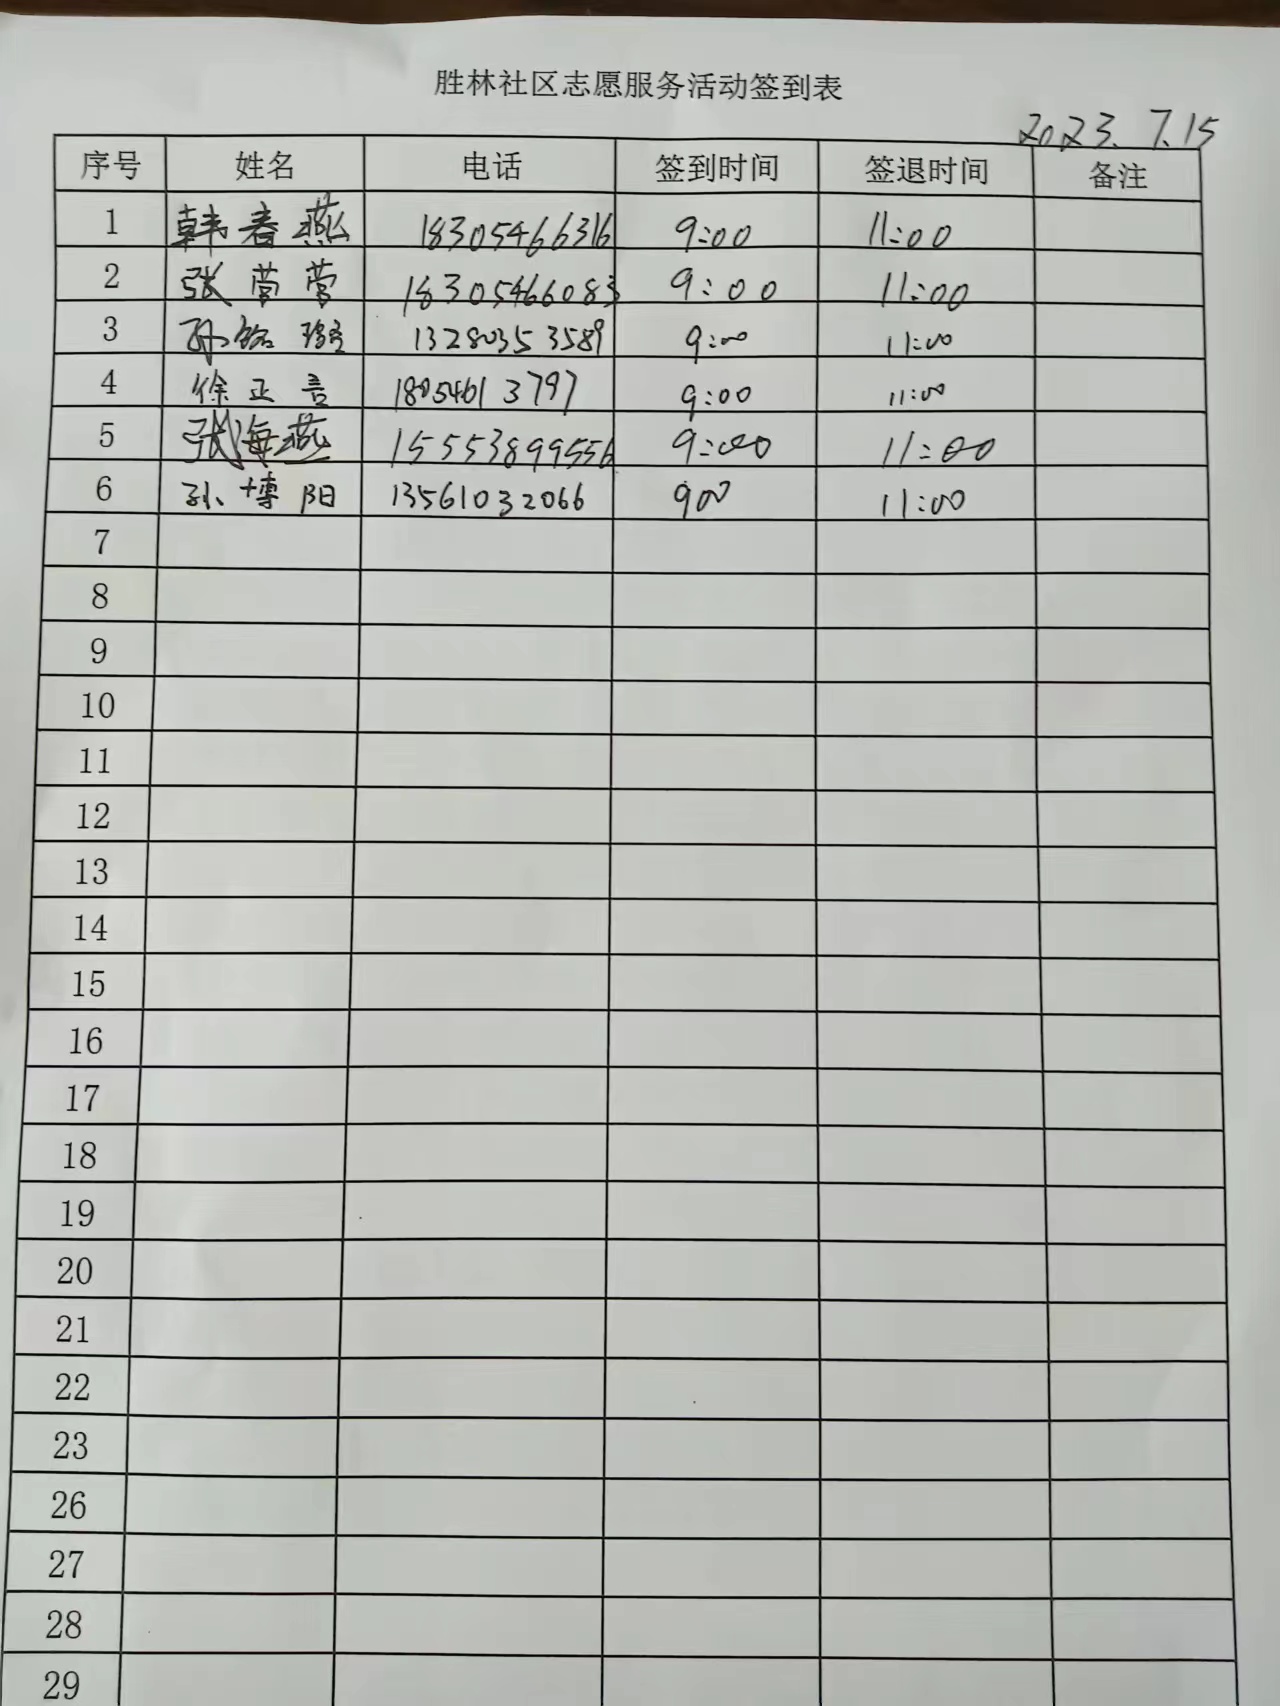 胜林社区志愿服务活动签到表
2023.7.15
序号 姓名 电话 签到时间 签退时间 备注
1 韩春燕 18305466316 9:00 11:00
2 张营营 18305466083 9:00 11:00
3 孙铭 13280353589 9:00 11:00
4 徐正言 18054613797 9:00 11:00
5 张海燕 15553899556 9:00 11:00
6 孙博阳 13561032066 900 11:00
7
8
9
10
11
12
13
14
15
16
17
18
19
20
21
22
23
26
27
28
29